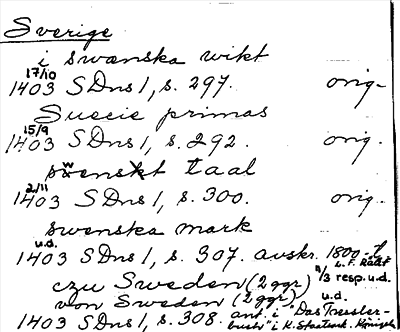 Sverige
i swänska wikt
17/10
1403 SDns 1, s. 297. orig-
Suecie primas
15/9
1403 SDns 1, s. 292. orig.
swenskt taal
2/11
1403 SDns 1, s. 300. orig-
swenska mark
u.d.
1403 SDns 1, s. 307. avskr. 1800-t
L. F. Rääf
czu Sweden (2 ggr) 11/3 resp. u.d.
von Sweden (2 ggr) u.d.
1403 SDns 1, s. 308. ant. i "Das Tressler-
buch" i K. Staatsark. Königsb